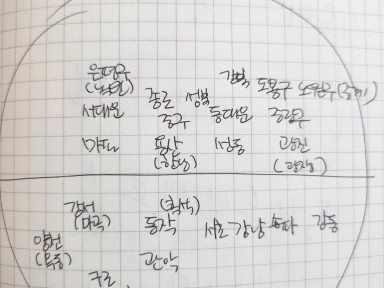 은평구 강북 도봉구 노원구 (중계)
(녹번) 종로 성북
서대문 중구 동대문 중랑구
마포 용산 성동 광진
(한남) (광장)
강서 (흑석)
(마곡) 동작 서초 강남 송파 강동
양천
(목동) 관악
구로